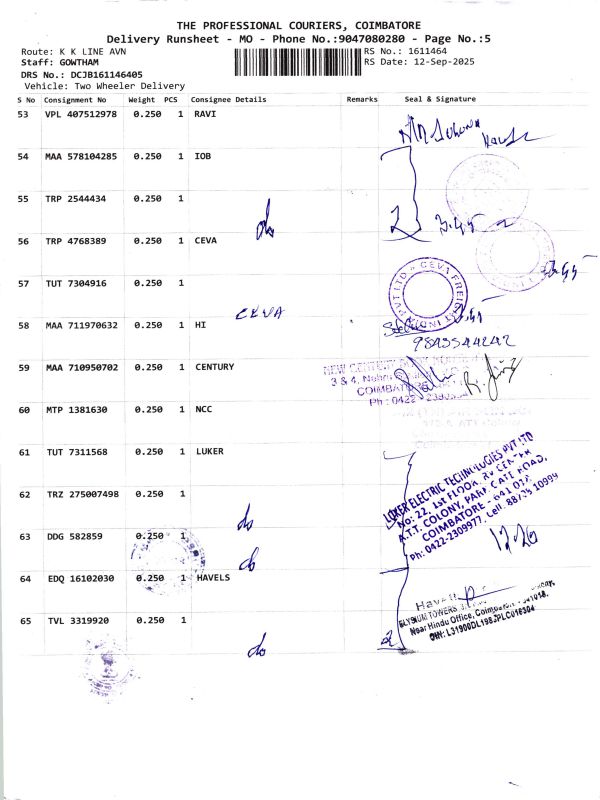 THE PROFESSIONAL COURIERS, COIMBATORE
Delivery Runsheet - MO - Phone No.:9047080280 - Page No.:5
Route: K K LINE AVN
RS No.: 1611464
Staff: GOWTHAM
RS Date: 12-Sep-2025
DRS No.: DCJB161146405
Vehicle: Two Wheeler Delivery
S No Consignment No Weight PCS Consignee Details Remarks Seal & Signature
53 VPL 407512978 0.250 1 RAVI
54 MAA 578104285 0.250 1 IOB
55 TRP 2544434 0.250 1
do
2
56 TRP 4768389 0.250 1 CEVA
57 TUT 7304916 0.250 1
CEVA
CEVA FREIGHT INDIA PVT LTD
58 MAA 711970632 0.250 1 HI
9843544242
59 MAA 710950702 0.250 1 CENTURY
NEW CENTURY
3 & 4,
COIMBATORE
Ph : 0422
60 MTP 1381630 0.250 1 NCC
61 TUT 7311568 0.250 1 LUKER
LUKER ELECTRIC TECHNOLOGIES PVT LTD
No: 22, 1st FLOOR, RV CENTER
A.T.T. COLONY, PARK GATE ROAD,
COIMBATORE - 641 018.
Ph: 0422-2309977, Cell: 88735 10994
62 TRZ 275007498 0.250 1
do
63 DDG 582859 0.250 1
do
64 EDQ 16102030 0.250 1 HAVELS
Havell
ELYSIUM TOWERS
Near Hindu Office, Coimbatore - 641018.
65 TVL 3319920 0.250 1
do
2